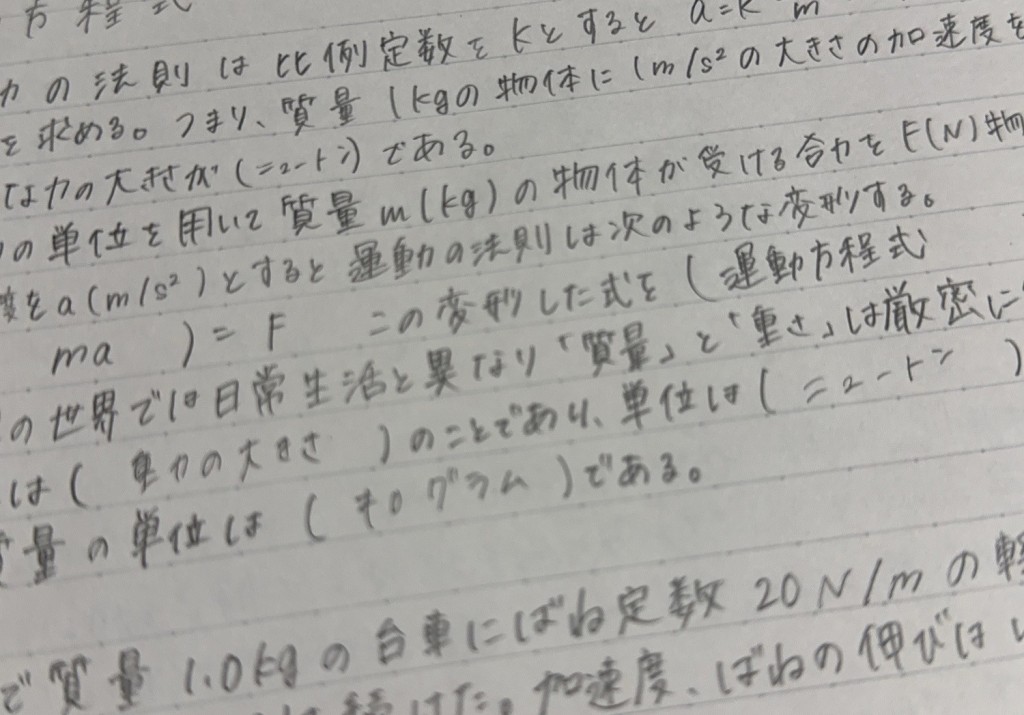 方程式
力の法則は比例定数をkとすると a=k m
を求める。つまり、質量1kgの物体に1m/s²の大きさの加速度を
な力の大きさが(ニュートン)である。
の単位を用いて質量m(kg)の物体が受ける合力をF(N)物
度をa(m/s²)とすると運動の法則は次のような変形する。
ma )=F この変形した式を(運動方程式
の世界では日常生活と異なり「質量」と「重さ」は厳密に
は( 重力の大きさ )のことであり、単位は(ニュートン )
量の単位は(キログラム)である。
で質量1.0kgの台車にばね定数20N/mの軽
続けた。加速度、ばねの伸びはい